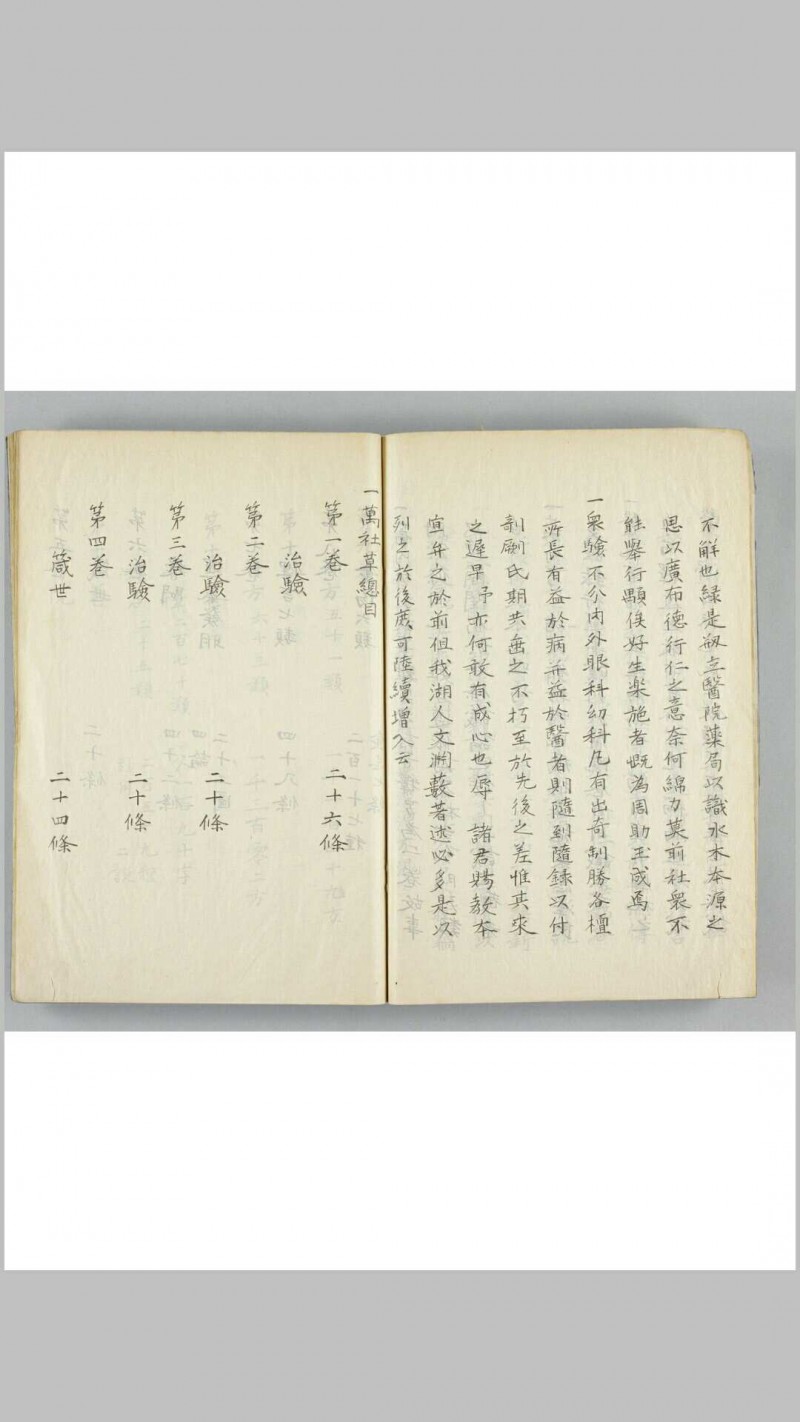 不解也緣是剏立醫院藥局以識水木本源之
思以廣布德行仁之意奈何綿力莫前社衆不
能舉行顒俟好生樂施者慨為周助玉成焉
一衆驗不分內外眼科幼科凡有出奇制勝各擅
所長有益於病并益於醫者則隨到隨錄以付
剞劂氏期共垂之不朽至於先後之差惟其來
之遲早予亦何敢有成心也辱 諸君賜教本
宜弁之於前但我湖人文淵藪著述必多是以
列之於後庶可陸續增入云
一萬社草總目
第一卷
治驗 二十六條
第二卷
治驗 二十條
第三卷
治驗 二十條
第四卷
箴世 二十四條